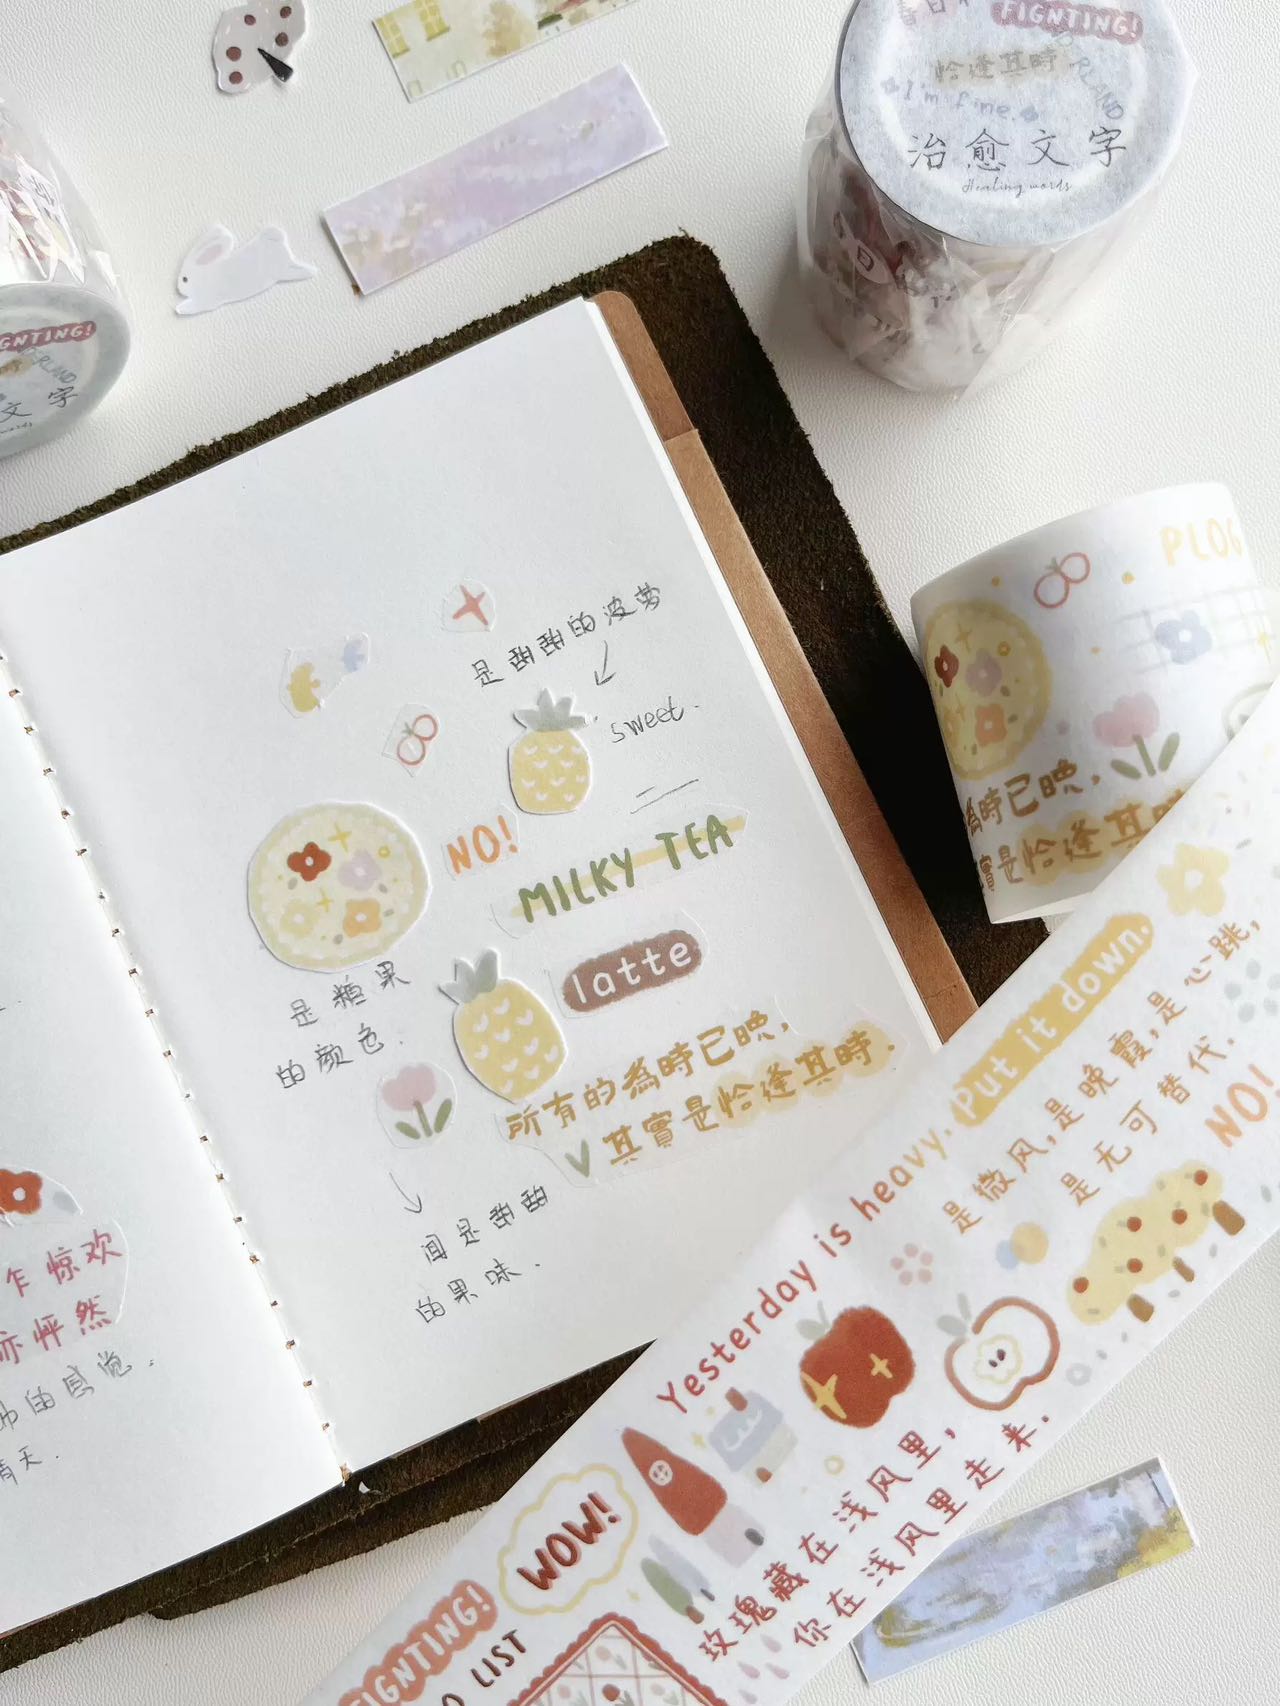 FIGNTING!
恰逢其時
I'm fine.
治愈文字
Healing words
GNTING!
文字
PLOG
是甜甜的波萝
sweet.
NO!
MILKY TEA
latte
是糖果
的颜色.
所有的為時已晚,
其實是恰逢其時.
闻是甜甜
的果味.
乍惊欢
亦怦然
的感觉.
晴天.
為時已晚,
實是恰逢其時
Yesterday is heavy. Put it down.
是微风,是晚霞,是心跳,
是无可替代.
NO!
WOW!
玫瑰藏在浅风里,
你在浅风里走来.
FIGNTING!
O LIST